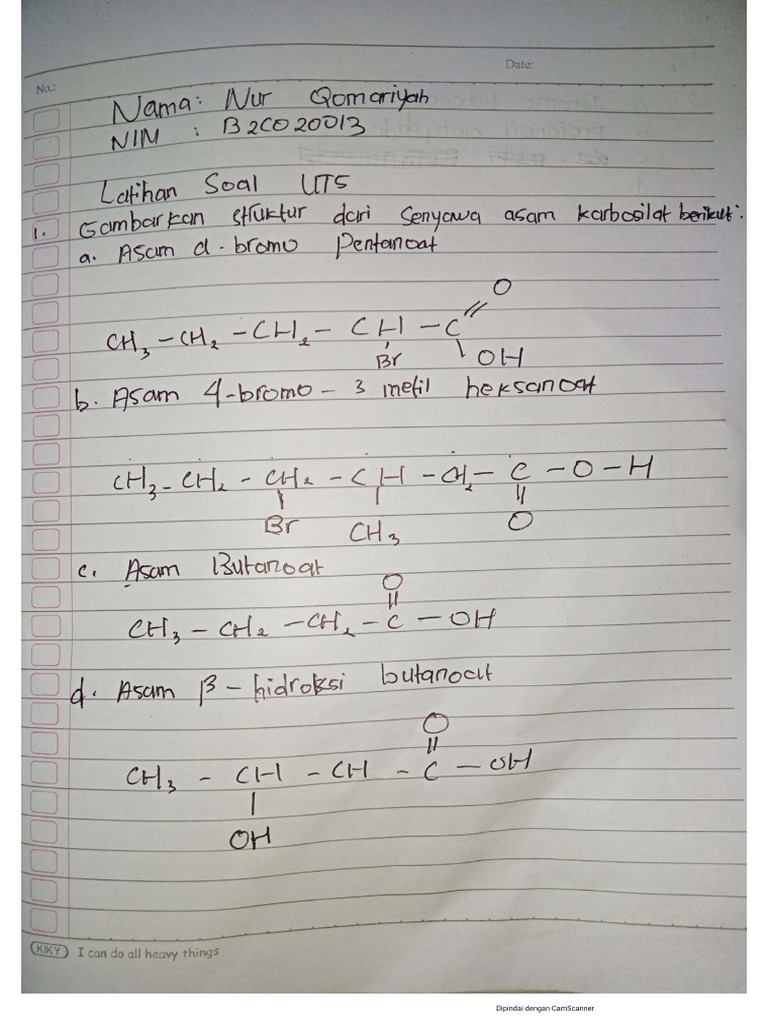 No.:
Date:
Nama: Nur Qomariyah
NIM : B2C020013
Latihan Soal UTS
1. Gambarkan struktur dari senyawa asam karbosilat berikut:
a. Asam d-bromo pentanoat
O
CH3 - CH2 - CH2 - CH - C
Br
OH
b. Asam 4-bromo - 3 metil heksanoat
CH3 - CH2 - CH2 - CH - CH2 - C - O - H
Br
CH3
O
c. Asam Butanoat
O
CH3 - CH2 - CH2 - C - OH
d. Asam β - hidroksi butanoat
O
CH3 - CH - CH - C - OH
OH
KIKY I can do all heavy things
Dipindai dengan CamScanner